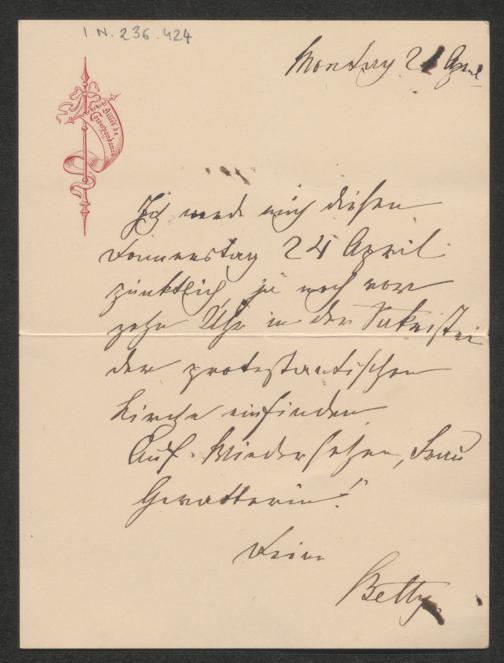 I N. 236.424
Montag 21 April
Billet de
Correspondance
Ich werde mich diesen
Donnerstag 24 April
pünktlich ja noch vor
zehn Uhr in der Sakristei
der protestantischen
Kirche einfinden
Auf Wiedersehen, Frau
Gevatterin!"
Deine
Betty.